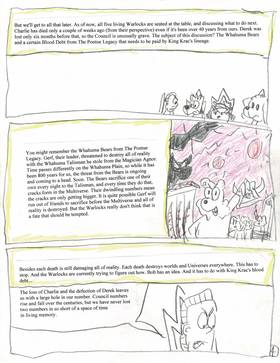 But we'll get to all that later. As of now, all five living Warlocks are seated at the table, and discussing what to do next.
Charlie has died only a couple of weeks ago (from their perspective) even if it's been over 40 years from ours. Derek was
lost only six months before that, so the Council is unusually grave. The subject of this discussion? The Whahuma Bears
and a certain Blood Debt from The Pontue Legacy that needs to be paid by King Krac's lineage.
You might remember the Whahuma Bears from The Pontue
Legacy. Gerf, their leader, threatened to destroy all of reality
with the Whahuma Talisman he stole from the Magician Agnor.
Time passes differently on the Whahuma Plain, so while it has
been 800 years for us, the threat from the Bears is ongoing
and coming to a head. Soon. The Bears sacrifice one of their
own every night to the Talisman, and every time they do that,
cracks form in the Multiverse. Their dwindling numbers mean
the cracks are only getting bigger. It is quite possible Gerf will
run out of friends to sacrifice before the Multiverse and all of
reality is destroyed. But the Warlocks really don't think that is
a fate that should be tempted.
Besides each death is still damaging all of reality. Each death destroys worlds and Universes everywhere. This has to
stop. And the Warlocks are currently trying to figure out how. Bob has an idea. And it has to do with King Krac's blood
debt...
The loss of Charlie and the defection of Derek leaves
us with a large hole in our number. Council numbers
rise and fall over the centuries, but we have never lost
two members in so short of a space of time
in living memory.